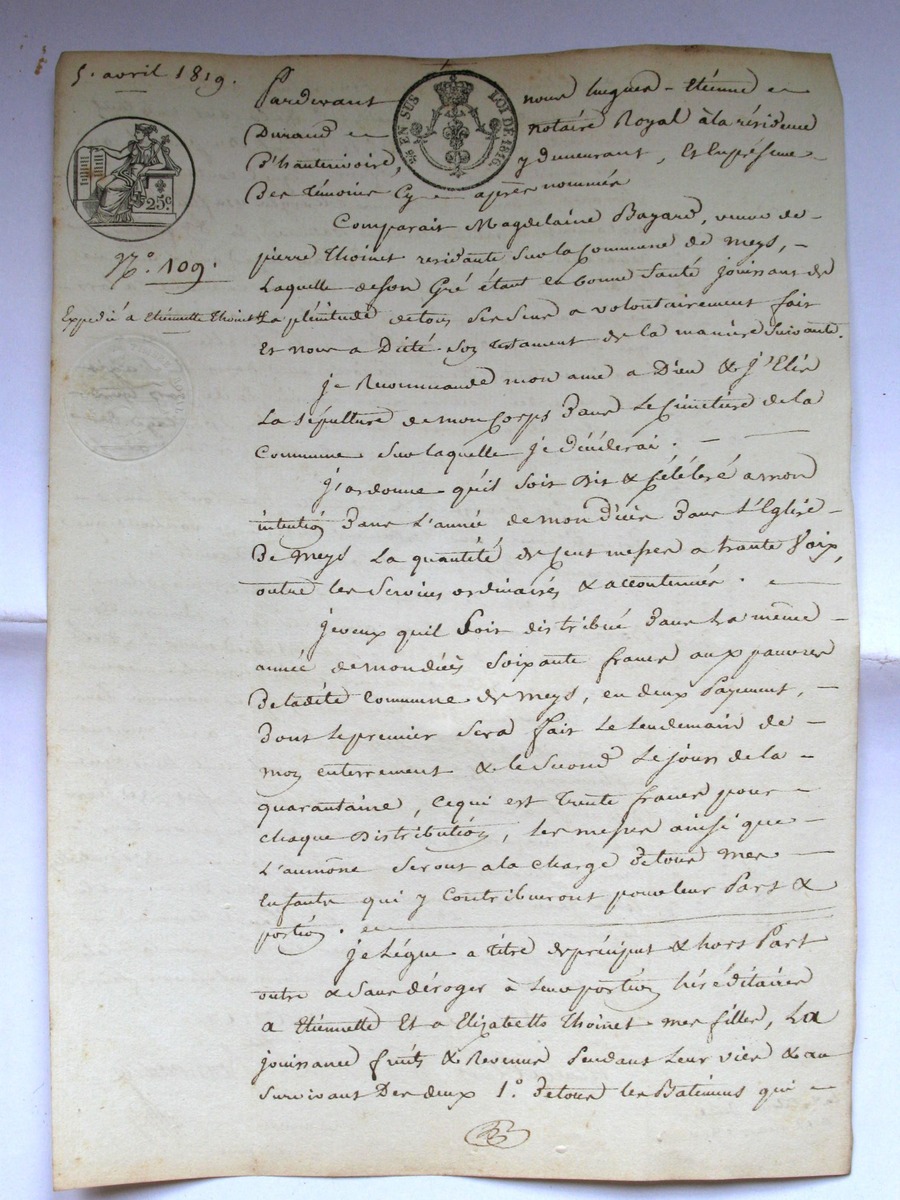 5. avril 1819.
25c.
¼ EN SUS LOI DE 1816.
N.o 109.
Expedié à Etiennette Thoinet
Pardevant nous hugues-Etienne
Durand notaire Royal à la résidence
d'hauterivoire, y demeurant, Et en présence
Des témoins Cy après nommés
Comparait Magdelaine Bayard, veuve de
pierre Thoinet residante sur la Commune de meys,
Laquelle de son Gré étant en bonne Santé jouissant de
La plénitude de tous Ses Sens a volontairement fait
Et nous a Dicté son testament de la maniere Suivante.
je Recommande mon ame a Dieu & j'Elis
La sépulture de mon Corps Dans Le Cimetiere de la
Commune sur laquelle je décéderai.
j'ordonne qu'il soit Dit & Célébré a mon
intention Dans L'année de mon décès Dans L'Eglise
De meys La quantité de Cent messes a haute Voix,
outre les Services ordinaires & accoutumés.
je veux qu'il Soit distribué Dans La même
année de mon décès Soixante francs aux pauvres
De ladite Commune de meys, en deux Payement,
Dont Le premier Sera fait Le Lendemain de
mon enterrement & le Second Le jour de la
quarantaine, Ce qui est trente francs pour
chaque Distribution, les messes ainsi que
L'aumône Seront a la charge De tous mes
Enfants qui y Contribueront pour leur Part &
portion.
je Légue a titre de préciput & hors Part
outre & Sans déroger à Leur portion héréditaire
a Etiennette Et a Elizabeth Thoinet mes filles, La
jouissance fruits & Revenus Pendant Leur vie & au
Survivant Des deux 1.o De tous les Batimens qui